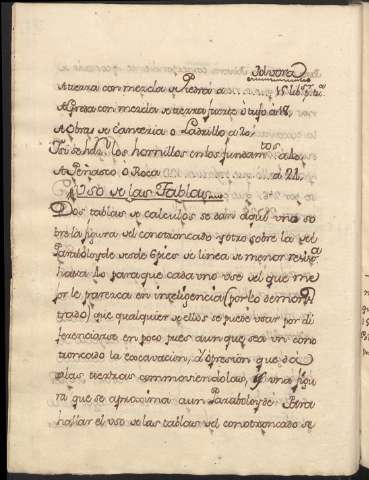 Polvora
A tierra con mezcla de Piedra a 15 lib.
A Greda con mezcla de tierra fuerte ò tufo a 18.
A Obras de Canteria o Ladrillo a 20.
Y si se haz los hornillos en los fundam.tos a
A Peñasco o Roca a 24.
Uso de las Tablas
Dos tablas de calculos se dan aqui una so
bre la figura del conotroncado y otro sobre la del
Paraboloyde desde 6 pies de linea de menor resis.a
hasta 40 para que cada uno use del que me
jor le parezca en inteligencia (por lo demons
trado) que qualquier de ellos se puede usar por di
ferenciarse en poco pues aunque sea un cono
troncado la excavacion, y opresion que da
a las tierras commoviendolas, es una figu
ra que se aproxima a un Paraboloyde. Para
hallar el uso de las tablas del conotroncado se